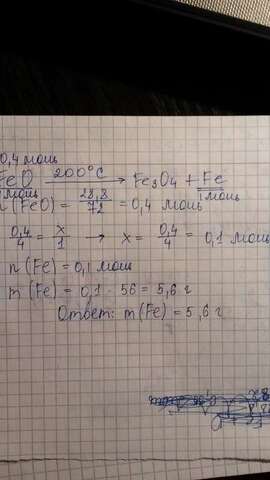 0,4 моль
FeO 200°C → Fe₃O₄ + Fe
моль 1 моль
n(FeO) = 28,8/72 = 0,4 моль
0,4/4 = x/1 → x = 0,4/4 = 0,1 моль
n(Fe) = 0,1 моль
m(Fe) = 0,1 · 56 = 5,6 г
Ответ: m(Fe) = 5,6 г